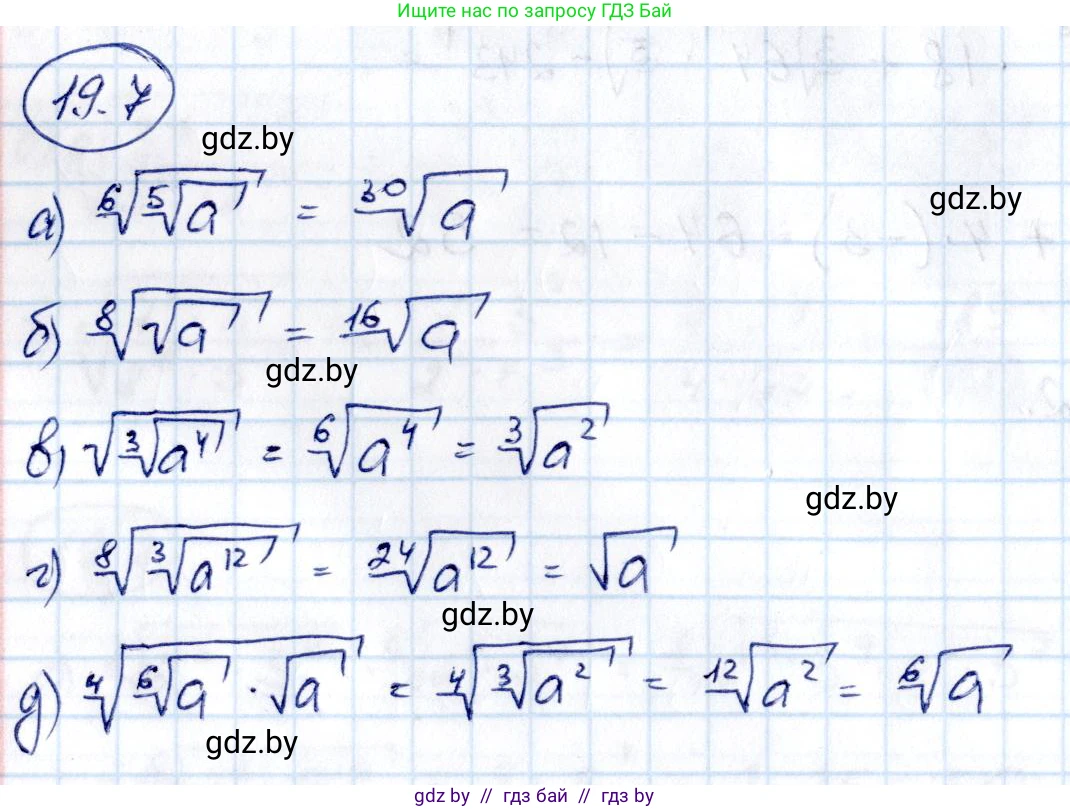 Ищите нас по запросу ГДЗ Бай
19.7
gdz.by
gdz.by
а) ⁶√(⁵√a) = ³⁰√a
б) ⁸√(√a) = ¹⁶√a
gdz.by
в) √(³√a⁴) = ⁶√a⁴ = ³√a²
gdz.by
г) ⁸√(³√a¹²) = ²⁴√a¹² = √a
gdz.by
д) ⁴√(⁶√a · √a) = ⁴√(³√a²) = ¹²√a² = ⁶√a
gdz.by
gdz by // гдз бай // gdz by